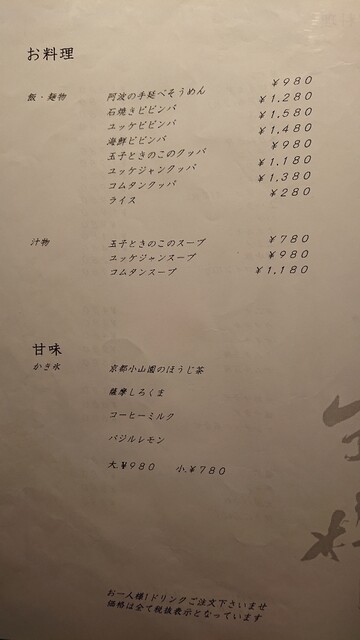 お料理
飯・麺物
阿波の手延べそうめん ¥980
石焼きビビンバ ¥1,280
ユッケビビンバ ¥1,580
海鮮ビビンバ ¥1,480
玉子ときのこのクッパ ¥980
ユッケジャンクッパ ¥1,180
コムタンクッパ ¥1,380
ライス ¥280
汁物
玉子ときのこのスープ ¥780
ユッケジャンスープ ¥980
コムタンスープ ¥1,180
甘味
かき氷
京都小山園のほうじ茶
薩摩しろくま
コーヒーミルク
バジルレモン
大.¥980 小.¥780
お一人様1ドリンクご注文下さいませ
価格は全て税抜表示となっています